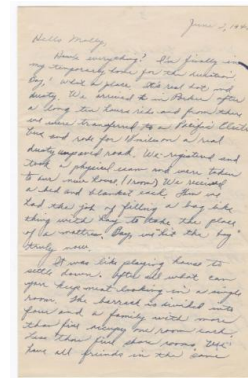 June 2, 194
Hello Molly,
How's everything? I'm finally in
my temporary home for the duration.
Boy, what a place, it's real hot and
dusty. We arrived in Parker after
a long ten hours ride and from there
we were transferred to a Pacific
bus and rode for a real
dusty road. We registered and
took a physical exam and were taken
to our new home (1 room). We received
a bed and blanket each, then we
had the job of filling a bag like
thing with hay to take the place
of a mattress. Boy, we "hit the hay"
truly now.
It was like playing house to
settle down. After all what can
you keep neat looking in a single
room. The barrack is divided into
four and a family with more
than five occupy one room each.
Less than five share rooms. We
have all friends in the same